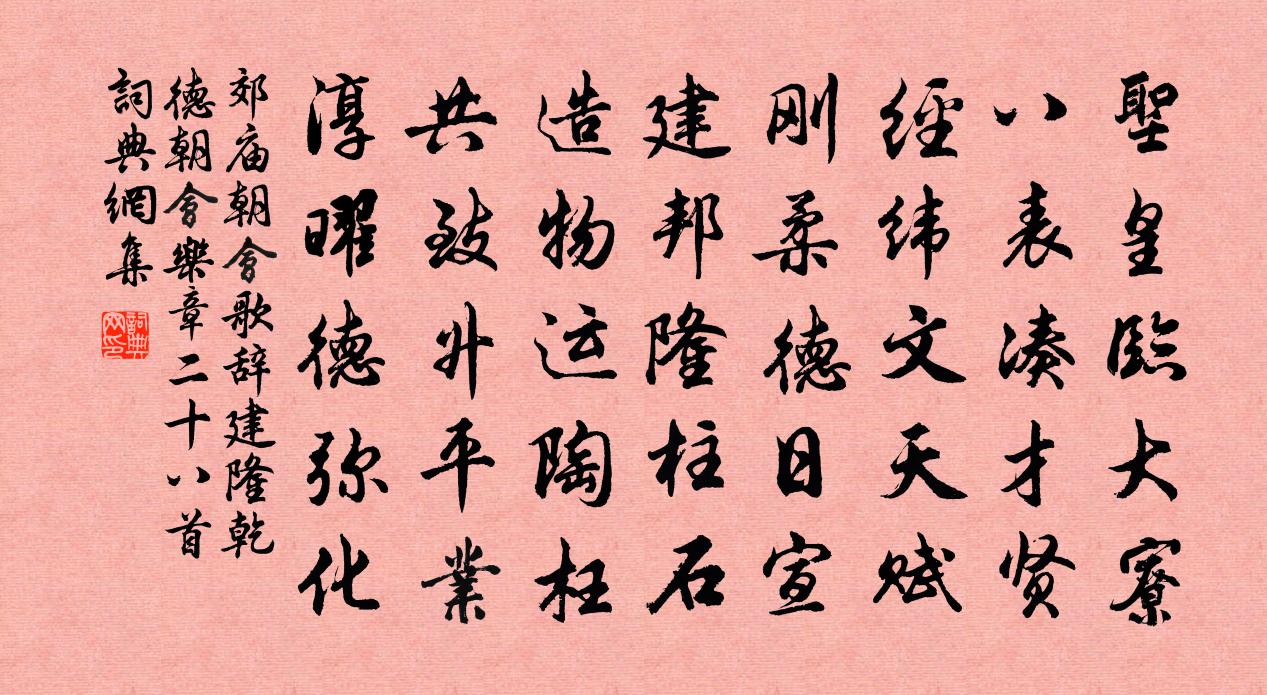 聖皇臨大寮
八表湊才贤
經纬文天赋
刚柔德日宣
建邦隆柱石
造物运陶枉
共致升平業
淳曜德弥化
郊庙朝會歌辞建隆乾
德朝會樂章二十八首
詞典網集
詞典网印